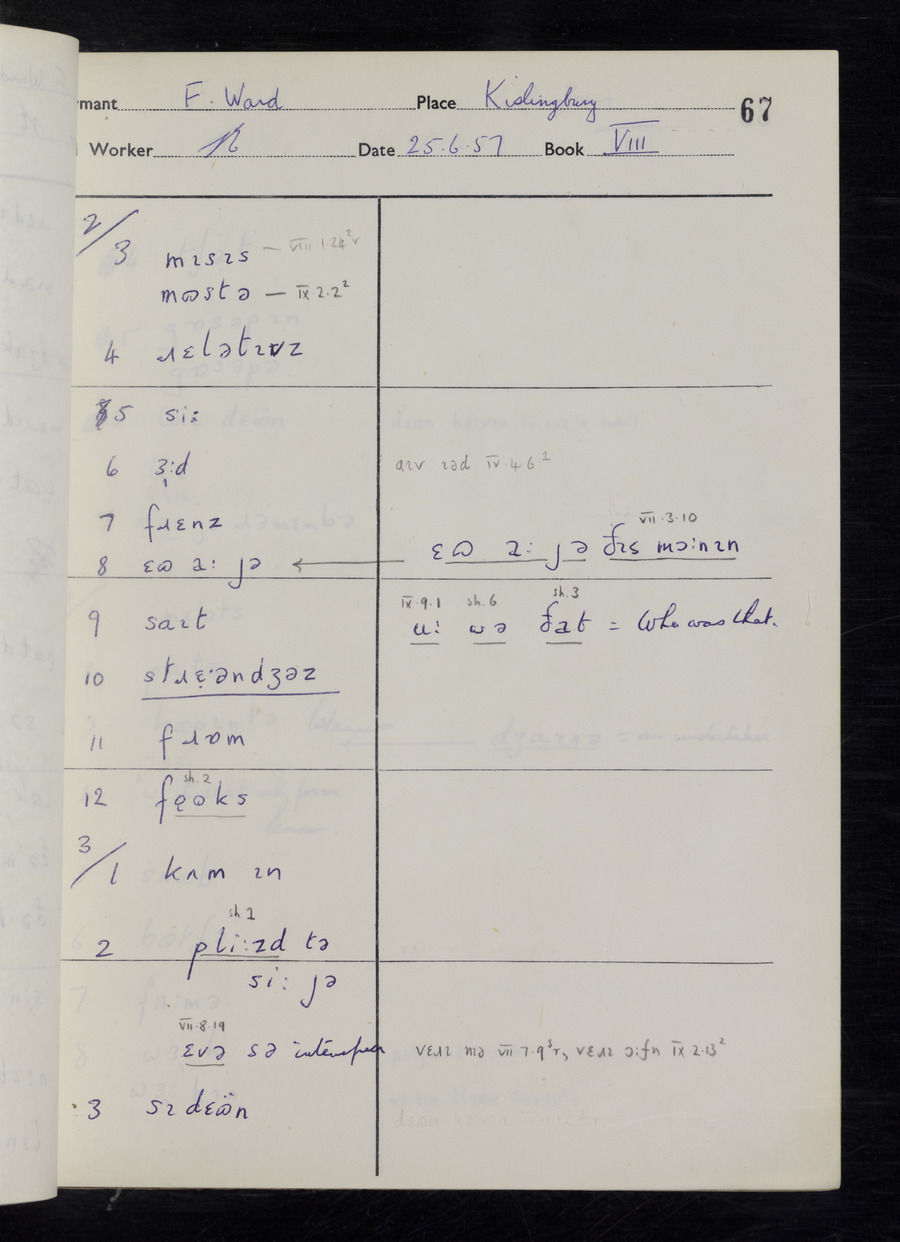 mant F. Ward Place Kislingbury 67
Worker Date 25.6.57 Book VIII
2/
3 mɪsɪs — VIII 1.24²r
mɷstə — IX.2.2²
4 ɹɛlətɪvz
5 si:
6 ɜ:d aɪv ɪəd IV 4 6¹
7 fɹɛnz VII.3.10
8 ɛɷ a: jə ← ɛɷ a: jə ðɪs mɔ:nɪn
IX.9.1 sh.6 sh.3
9 saɪt u: wə ðat = Who was that.
10 stɹɛ·əndʒəz
11 fɹɒm
sh.2
12 fɷks
3/
1 kʌm ɪn
sh 1
2 pli:zd tə
si: jə
VII.8.19
ɛvə sə intensifier vɛɹɪ mə VII 7.9³r, vɛɹɪ ɔ:fn IX 2.13²
3 sɪ dɛɷn